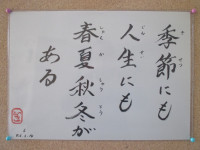 季節にも
人生にも
春夏秋冬が
ある